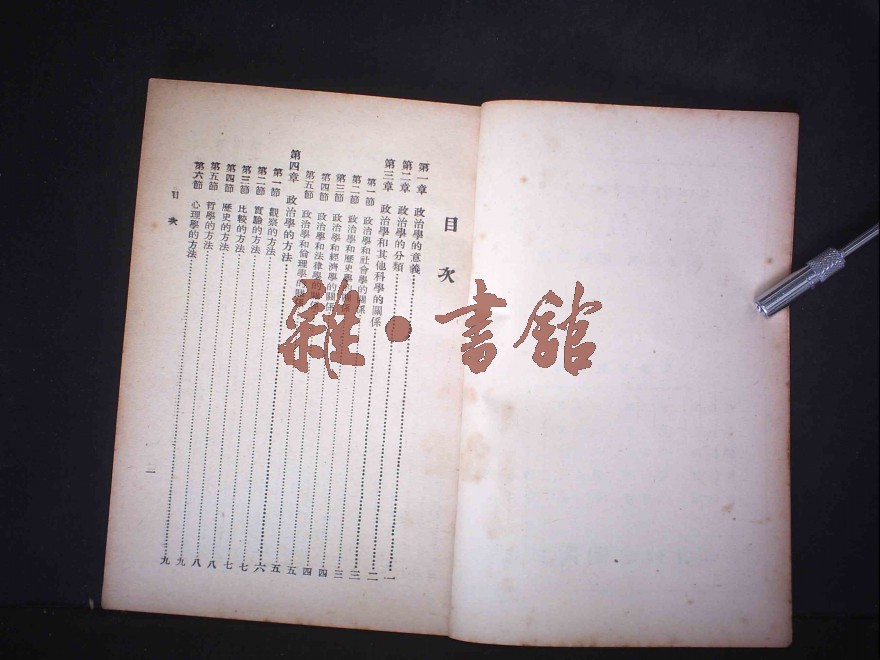 目次
第一章 政治學的意義……一
第二章 政治學的分類……二
第三章 政治學和其他科學的關係……三
第一節 政治學和社會學的關係……三
第二節 政治學和歷史學的關係……四
第三節 政治學和經濟學的關係……四
第四節 政治學和法律學的關係……五
第五節 政治學和倫理學的關係……五
第四章 政治學的方法……六
第一節 觀察的方法……七
第二節 實驗的方法……七
第三節 比較的方法……八
第四節 歷史的方法……八
第五節 哲學的方法……九
第六節 心理學的方法……九
目次
雜•書館